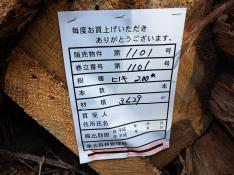 毎度お買上げいただき
ありがとうございます。
販売物件 第 1101 号
巻立番号 第 1101 号
樹種 ヒノキ
本数 本
材積 3.629 m³
買受人
住所氏名
搬出期限
東北森林管理局